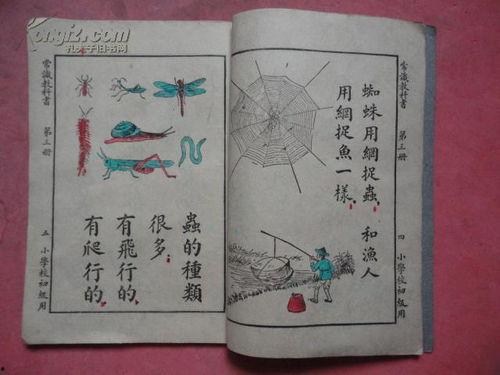 常識教科書 第三册 四 小學校初級用
蜘蛛用網捉蟲，和漁人
用網捉魚一樣。
蟲的種類
很多，
有飛行的，
有爬行的，
常識教科書 第三册 五 小學校初級用
kongfz.com
孔夫子旧书网